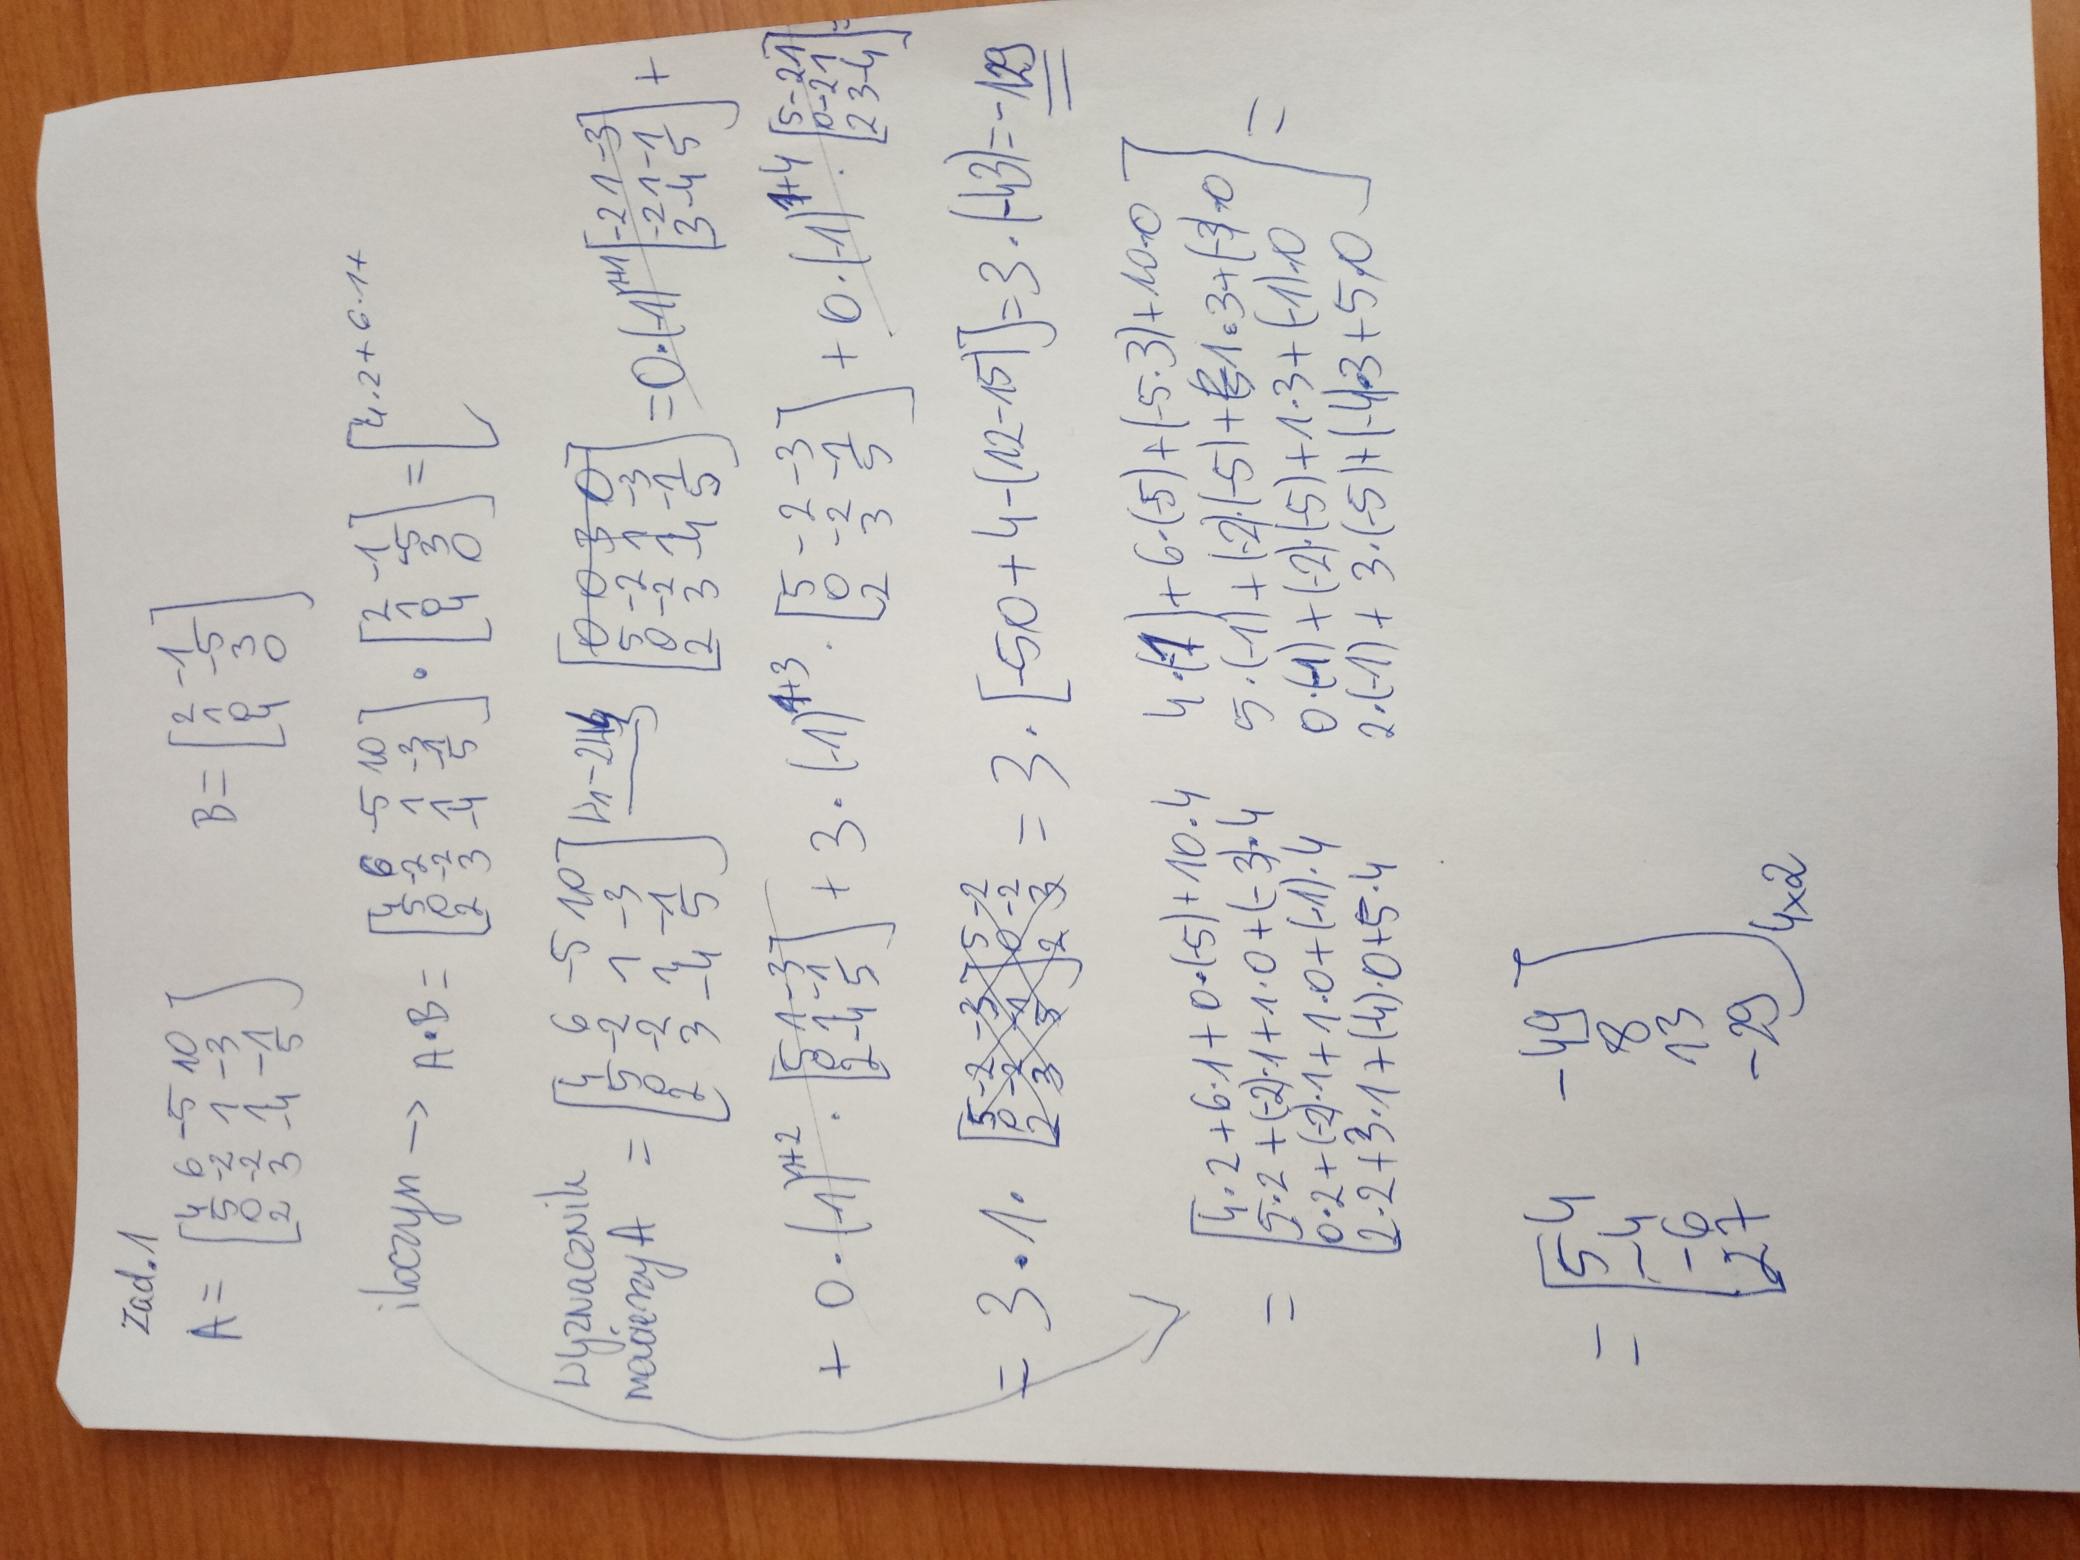 Zad.1
A = [4 6 -5 10
5 -2 1 -3
0 -2 1 -1
2 3 -4 5]
B = [2 -1
1 -5
0 3
4 0]
iloczyn → A•B = [4 6 -5 10
5 -2 1 -3
0 -2 1 -1
2 3 -4 5] • [2 -1
1 -5
0 3
4 0] = [4.2+6.1+
wyznacznik
macierzy A = [4 6 -5 10
5 -2 1 -3
0 -2 1 -1
2 3 -4 5]
[0 0 3 0
5 -2 1 -3
0 -2 1 -1
2 3 -4 5] = 0•(-1)^1+1 [-2 1 -3
-2 1 -1
3 -4 5] +
+ 0•(-1)^1+2 • [5 1 -3
0 1 -1
2 -4 5] + 3•(-1)^1+3 • [5 -2 -3
0 -2 -1
2 3 5] + 0•(-1)^1+4 • [5 -2 1
0 -2 1
2 3 -4] =
= 3•1• [5 -2 -3
0 -2 -1
2 3 5] 5 -2
0 -2
2 3 = 3•[-50+4-(12-15)] = 3•(-43) = -129
= [4•2+6•1+0•(-5)+10•4 4•(-1)+6•(-5)+(-5•3)+10•0
5•2+(-2)•1+1•0+(-3)•4 5•(-1)+(-2)•(-5)+1•3+(-3)•0
0•2+(-2)•1+1•0+(-1)•4 0•(-1)+(-2)•(-5)+1•3+(-1)•0
2•2+3•1+(-4)•0+5•4 2•(-1)+3•(-5)+(-4)•3+5•0] =
= [54 -49
-4 8
-6 13
27 -29] 4x2